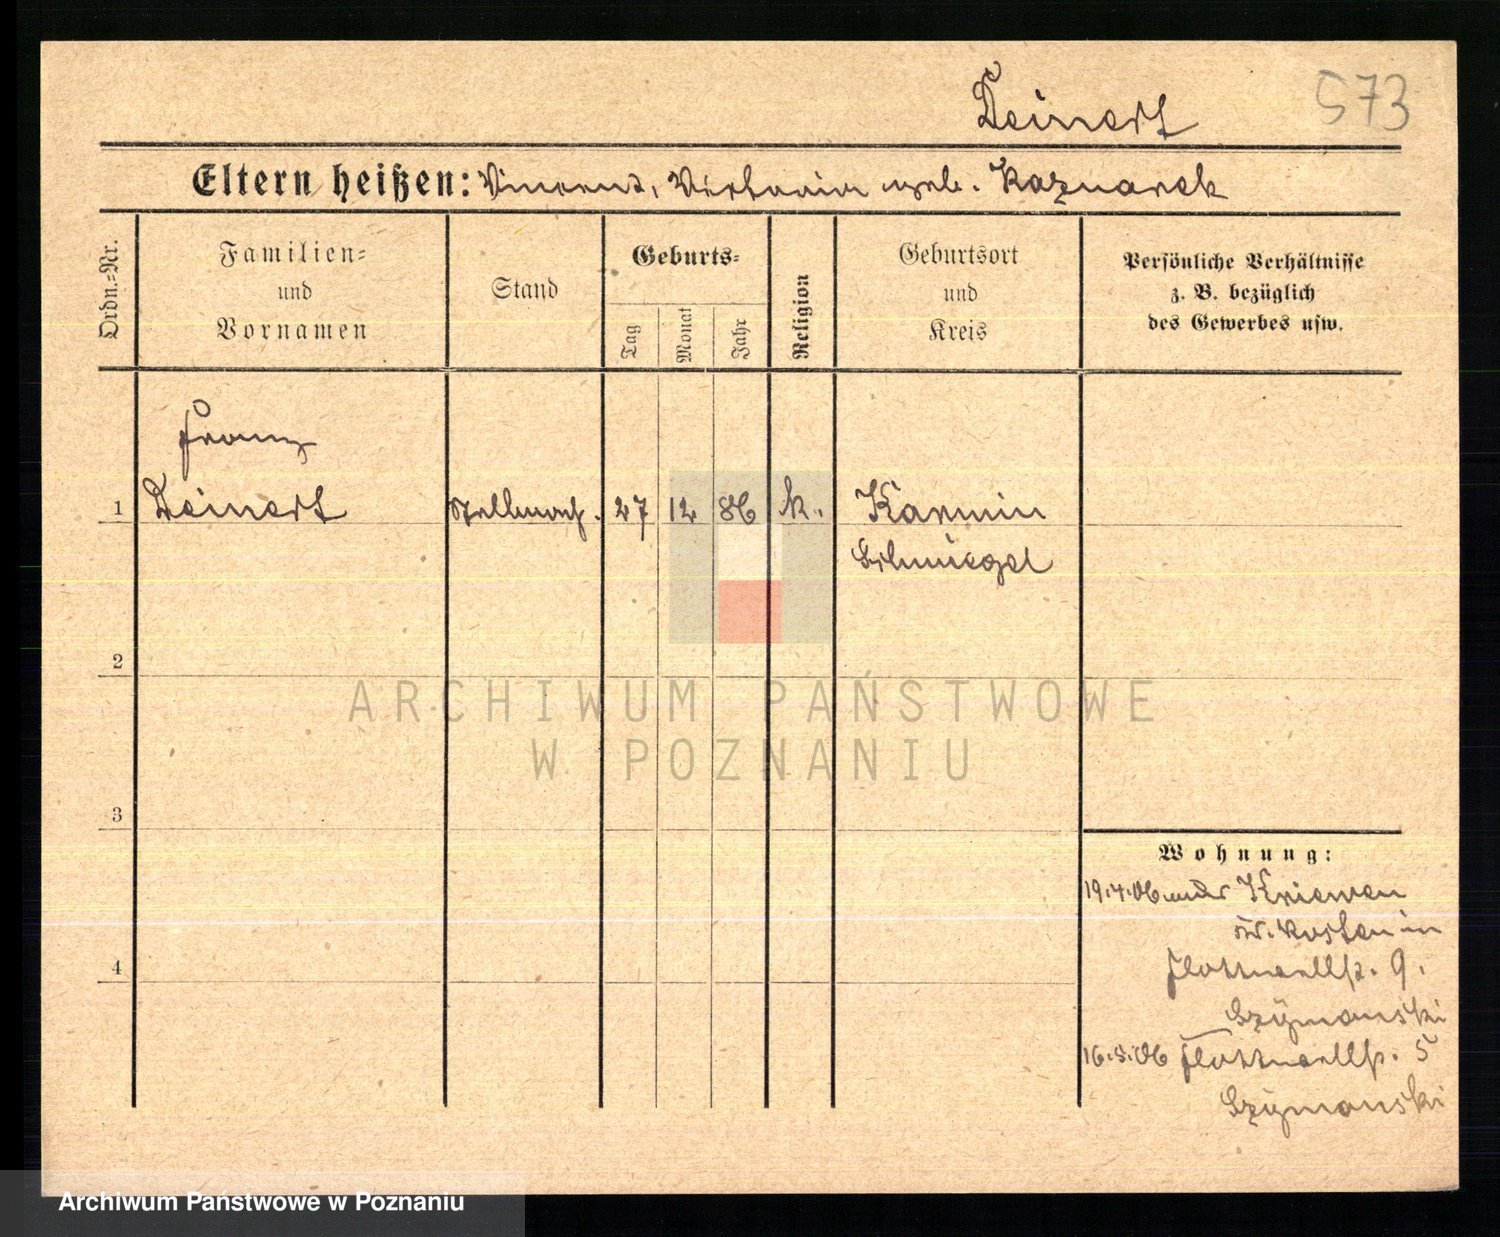 Deinert 573
Eltern heißen: Vincent, Viktoria geb. Kaznarek
Ordn.=Nr.
Familien=
und
Vornamen
Stand
Geburts=
Tag
Monat
Jahr
Religion
Geburtsort
und
Kreis
Persönliche Verhältnisse
z. B. bezüglich
des Gewerbes usw.
Franz
1 Deinert Stellmach. 27 12 86 k. Karmin
Schmiegel
2
3
4
Wohnung:
19.4.06 Kriewen
Kosten in
Flottwellst. 9.
Szÿmanski
16.5.06 Flottwellst. 5
Szÿmanski
ARCHIWUM PAŃSTWOWE
W POZNANIU
Archiwum Państwowe w Poznaniu